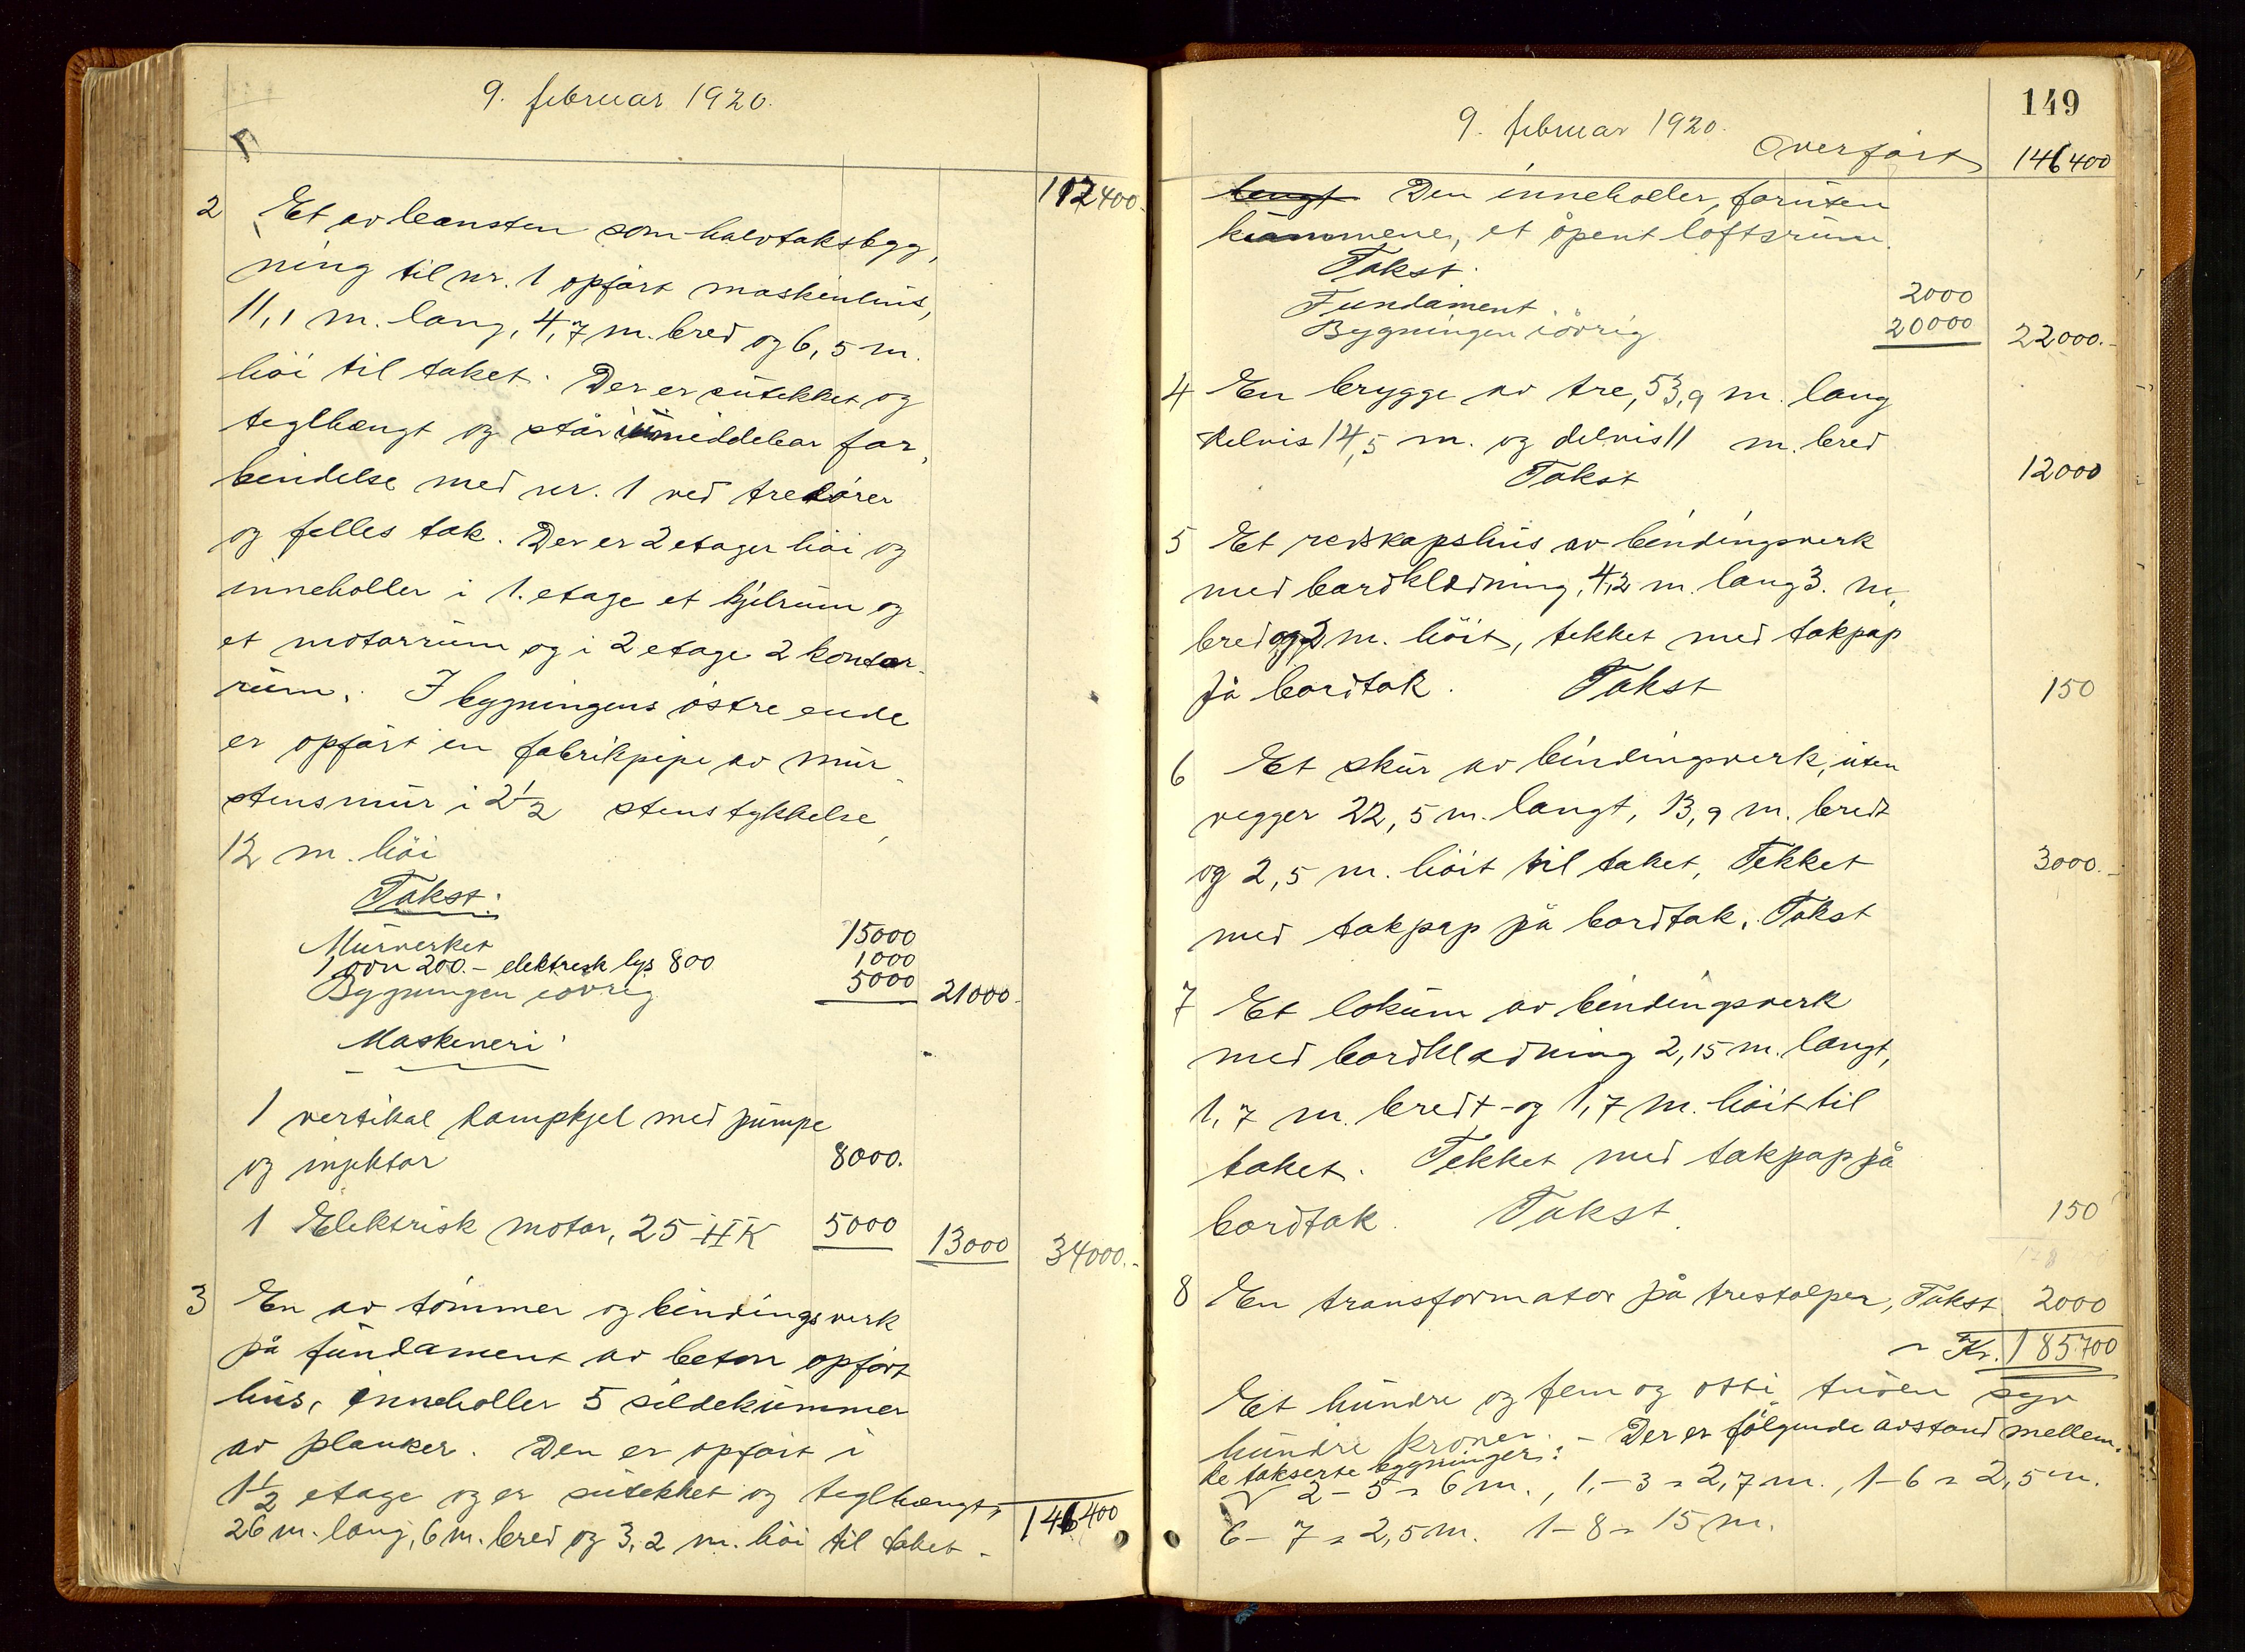 9. februar 1920.
112400.
2 Et av leansten som halvtaksbygg,
ning til nr. 1 opført maskinhus,
11,1 m. lang, 4,7 m. bred og 6,5 m.
höi til taket. Der er sutekket og
teglhængt og står i umiddelbar for,
bindelse med nr. 1 ved tredörer
og felles tak. Der er 2 etager höi og
inneholler i 1. etage et kjelrum og
et motorrum og i 2 etage 2 kontor-
rum. I bygningens östre ende
er opfört en fabrikpipe av mur-
stensmur i 2½ stenstykkelse,
12 m. höi
Takst:
Murverket 15000
1 ovn 200.- elektrisk lys 800 1000
Bygningen iövrig 5000 21000.
Maskineri
1 vertikal dampkjel med pumpe
og injektor 8000.
1 Elektrisk motor, 25 HK 5000 13000 34000.-
3 En av tömmer og bindingsverk
på fundament av beton opfört
hus, inneholler 5 sildekummer
av planker. Den er opfört i
1½ etage og er sutekket og teglhængt,
26 m. lang, 6 m. bred og 3,2 m. höi til taket. 146400
149
9. februar 1920.
Overført 146400
lengt Den inneholler, foruten
kummene, et åpent loftsrum.
Takst.
Fundament 2000
Bygningen iövrig 20000 22000.-
4 En brygge av tre, 53,9 m. lang
delvis 14,5 m. og delvis 11 m. bred
Takst 12000
5 Et redskapshus av bindingsverk
med bordklædning, 4,2 m. lang 3. m.
bred og 2 m. höit, tekket med takpap
på bordtak. Takst 150
6 Et skur av bindingsverk, uten
vegger 22,5 m. langt, 13,9 m. bredt
og 2,5 m. höit til taket, Tekket 3000.-
med takpap på bordtak. Takst
7 Et lokum av bindingsverk
med bordklædning 2,15 m. langt,
1,7 m. bredt og 1,7 m. höit til
taket. Tekket med takpap på
bordtak. Takst. 150
8 En transformator på trestolper, Takst 2000
Kr. 185700
Et hundre og fem og otti tusen syv
hundre kroner. - Der er fölgende avstand mellem
de takserte bygninger:
2 - 5 = 6 m., 1 - 3 = 2,7 m., 1 - 6 = 2,5 m.
6 - 7 = 2,5 m. 1 - 8 = 15 m.